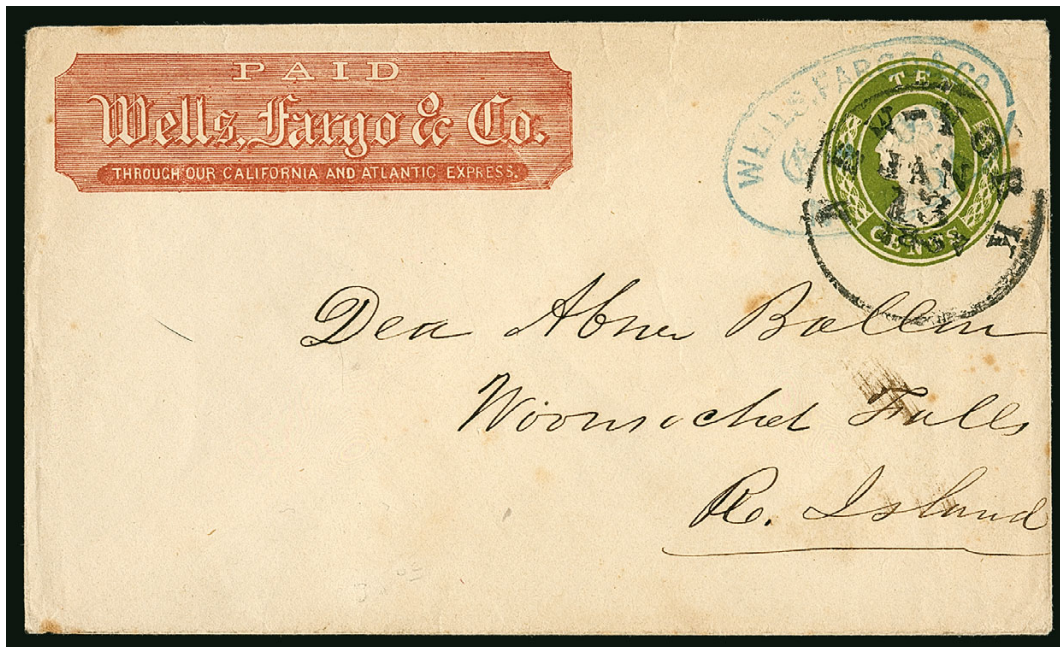 PAID
Wells, Fargo & Co.
THROUGH OUR CALIFORNIA AND ATLANTIC EXPRESS.
WELLS, FARGO & Co
TEN
CENTS
NEW-YORK
JAN
13
Dea Abner Ballou
Woonsocket Falls
R. Island